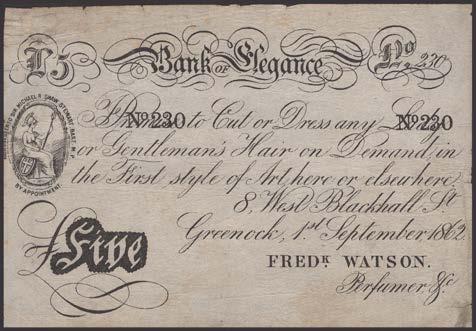 £5 Bank OF Elegance No. 230
I Prom to Cut or Dress any Lady's
No 230 No 230
or Gentleman's Hair on Demand, in
the First style of Art, here or elsewhere
BY APPOINTMENT.
8, West Blackhall St.
Greenock, 1st September 1862
£Five
FREDK WATSON.
Perfumer, &c.